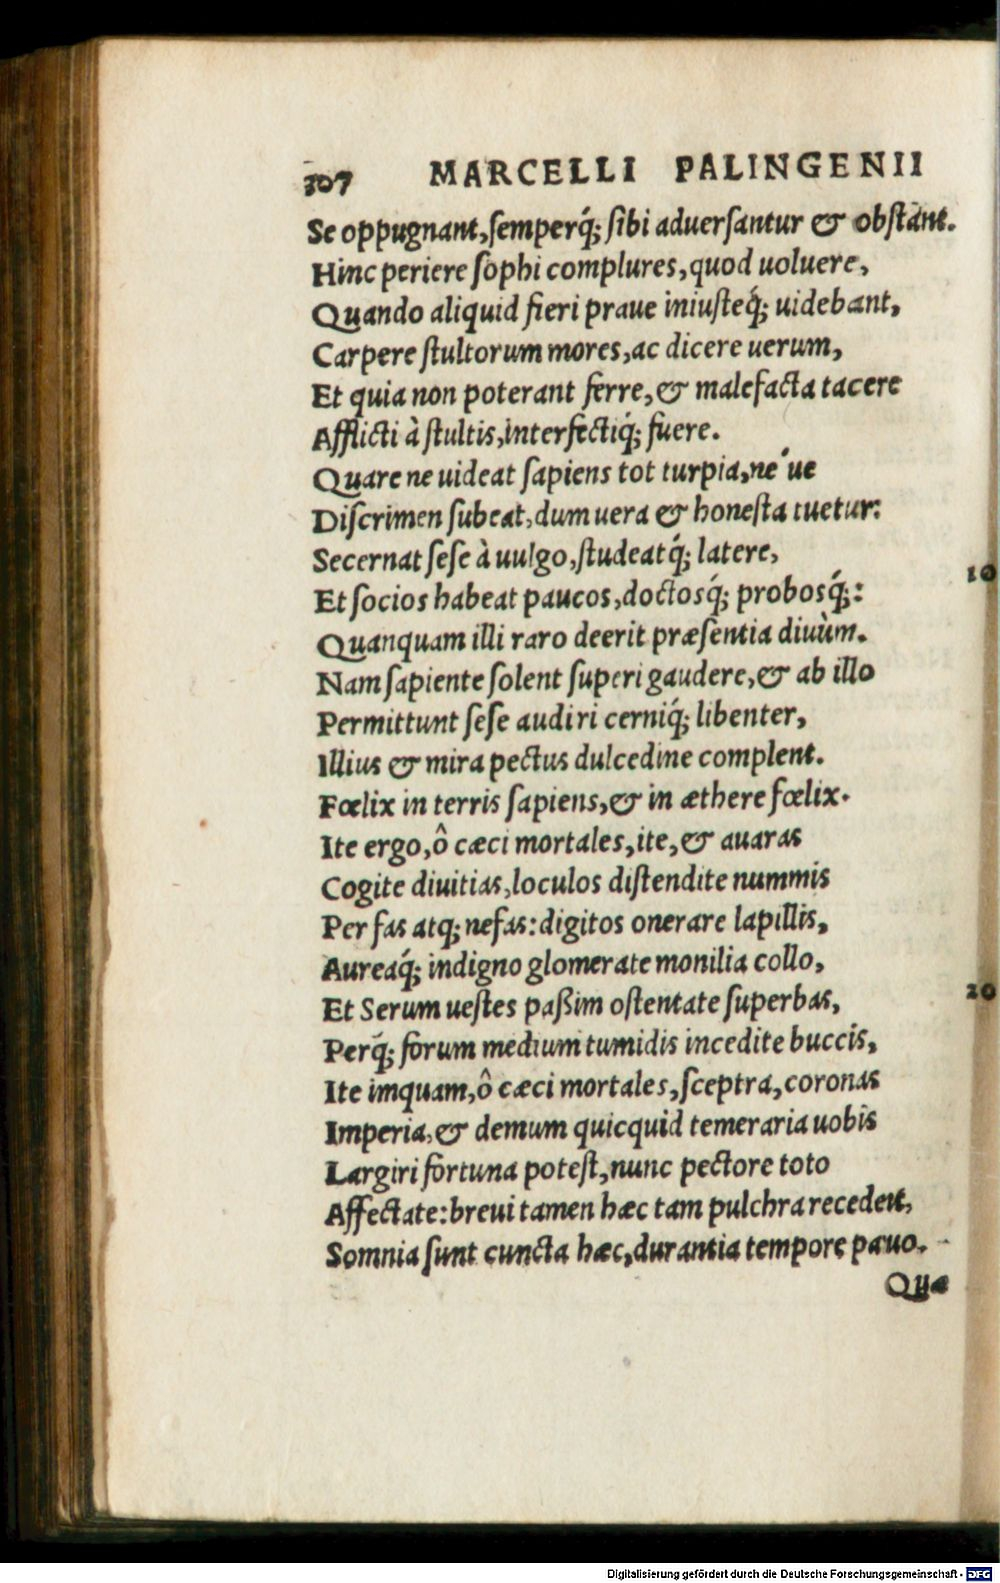 307 MARCELLI PALINGENII
Se oppugnant, semperq́; sibi aduersantur & obstant.
Hinc periere sophi complures, quod uoluere,
Quando aliquid fieri praue iniusteq́; uidebant,
Carpere stultorum mores, ac dicere uerum,
Et quia non poterant ferre, & malefacta tacere
Afflicti à stultis, interfectiq́; fuere.
Quare ne uideat sapiens tot turpia, ne´ue
Discrimen subeat, dum uera & honesta tuetur:
Secernat sese à uulgo, studeatq́; latere,
Et socios habeat paucos, doctosq́; probosq́;:
Quanquam illi raro deerit præsentia diuùm.
Nam sapiente solent superi gaudere, & ab illo
Permittunt sese audiri cerniq́; libenter,
Illius & mira pectus dulcedine complent.
Fœlix in terris sapiens, & in æthere fœlix.
Ite ergo, ô cæci mortales, ite, & auaras
Cogite diuitias, loculos distendite nummis
Per fas atq; nefas: digitos onerare lapillis,
Aureaq́; indigno glomerate monilia collo,
Et Serum uestes paßim ostentate superbas,
Perq́; forum medium tumidis incedite buccis,
Ite imquam, ô cæci mortales, sceptra, coronas
Imperia, & demum quicquid temeraria uobis
Largiri fortuna potest, nunc pectore toto
Affectate: breui tamen hæc tam pulchra recedent,
Somnia sunt cuncta hæc, durantia tempore pauo.
Quæ
10
20
Digitalisierung gefördert durch die Deutsche Forschungsgemeinschaft - DFG